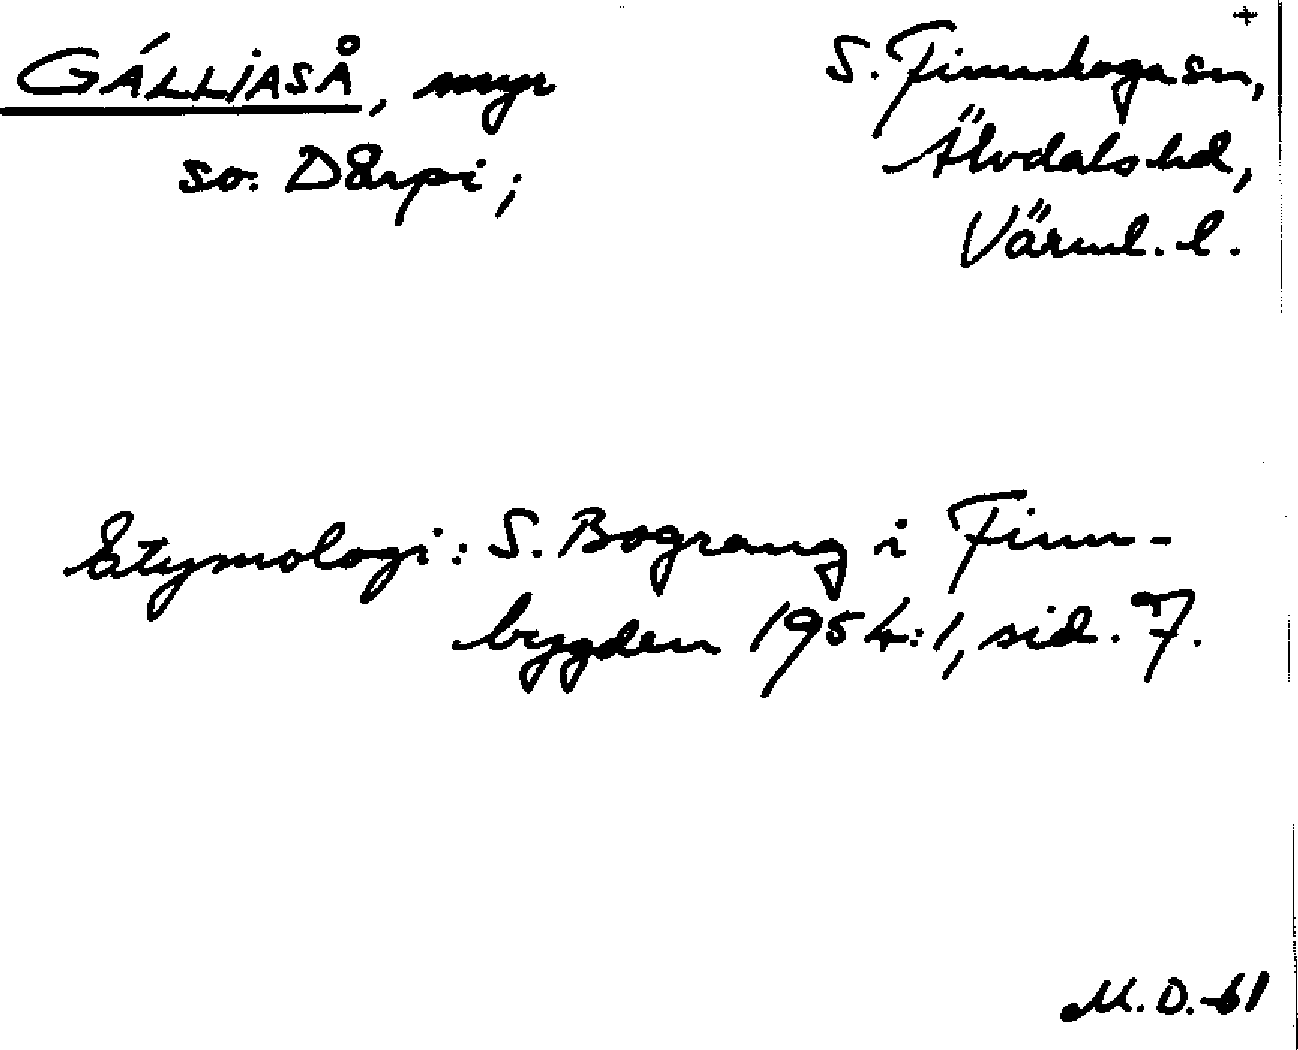 +
GÁLLIASÅ, myr
so. Dårpi;
S. Finnskoga sn,
Älvdals hd,
Värml. l.
Etymologi: S. Bograng i Finn-
bygden 1954:1, sid. 7.
M.D.-61